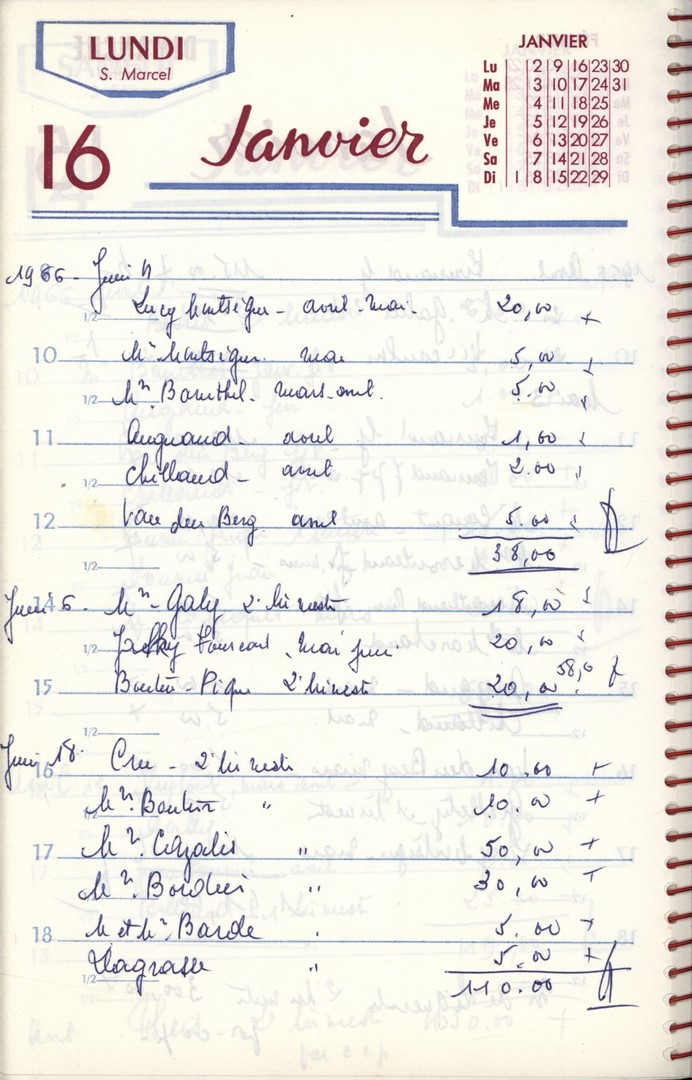 LUNDI
S. Marcel
16
Janvier
JANVIER
Lu 2 9 16 23 30
Ma 3 10 17 24 31
Me 4 11 18 25
Je 5 12 19 26
Ve 6 13 20 27
Sa 7 14 21 28
Di 1 8 15 22 29
1966 - Juin
1/2 Lucy - avril - mai - 20,00 +
10 mai 5,00
1/2 mars - avril. 5.00
11 avril 1,00
1/2 Chillaud - avril 2.00
12 Van den Berg avril 5.00
1/2 38,00
14 Juin 6. Mr - Galy 2e trimestre 18,00
1/2 mai juin. 20,00
15 - Pique 2e trimestre 20,00 58,0
1/2
Juin 18.
16 Cru - 2e trimestre 10.00 +
1/2 Mr. " 10.00 +
17 Mr. Cazalis " 50,00 +
1/2 Mr. " 30,00 +
18 M et Mr. Barde " 5.00 +
1/2 Lagrasse " 5.00 +
110.00